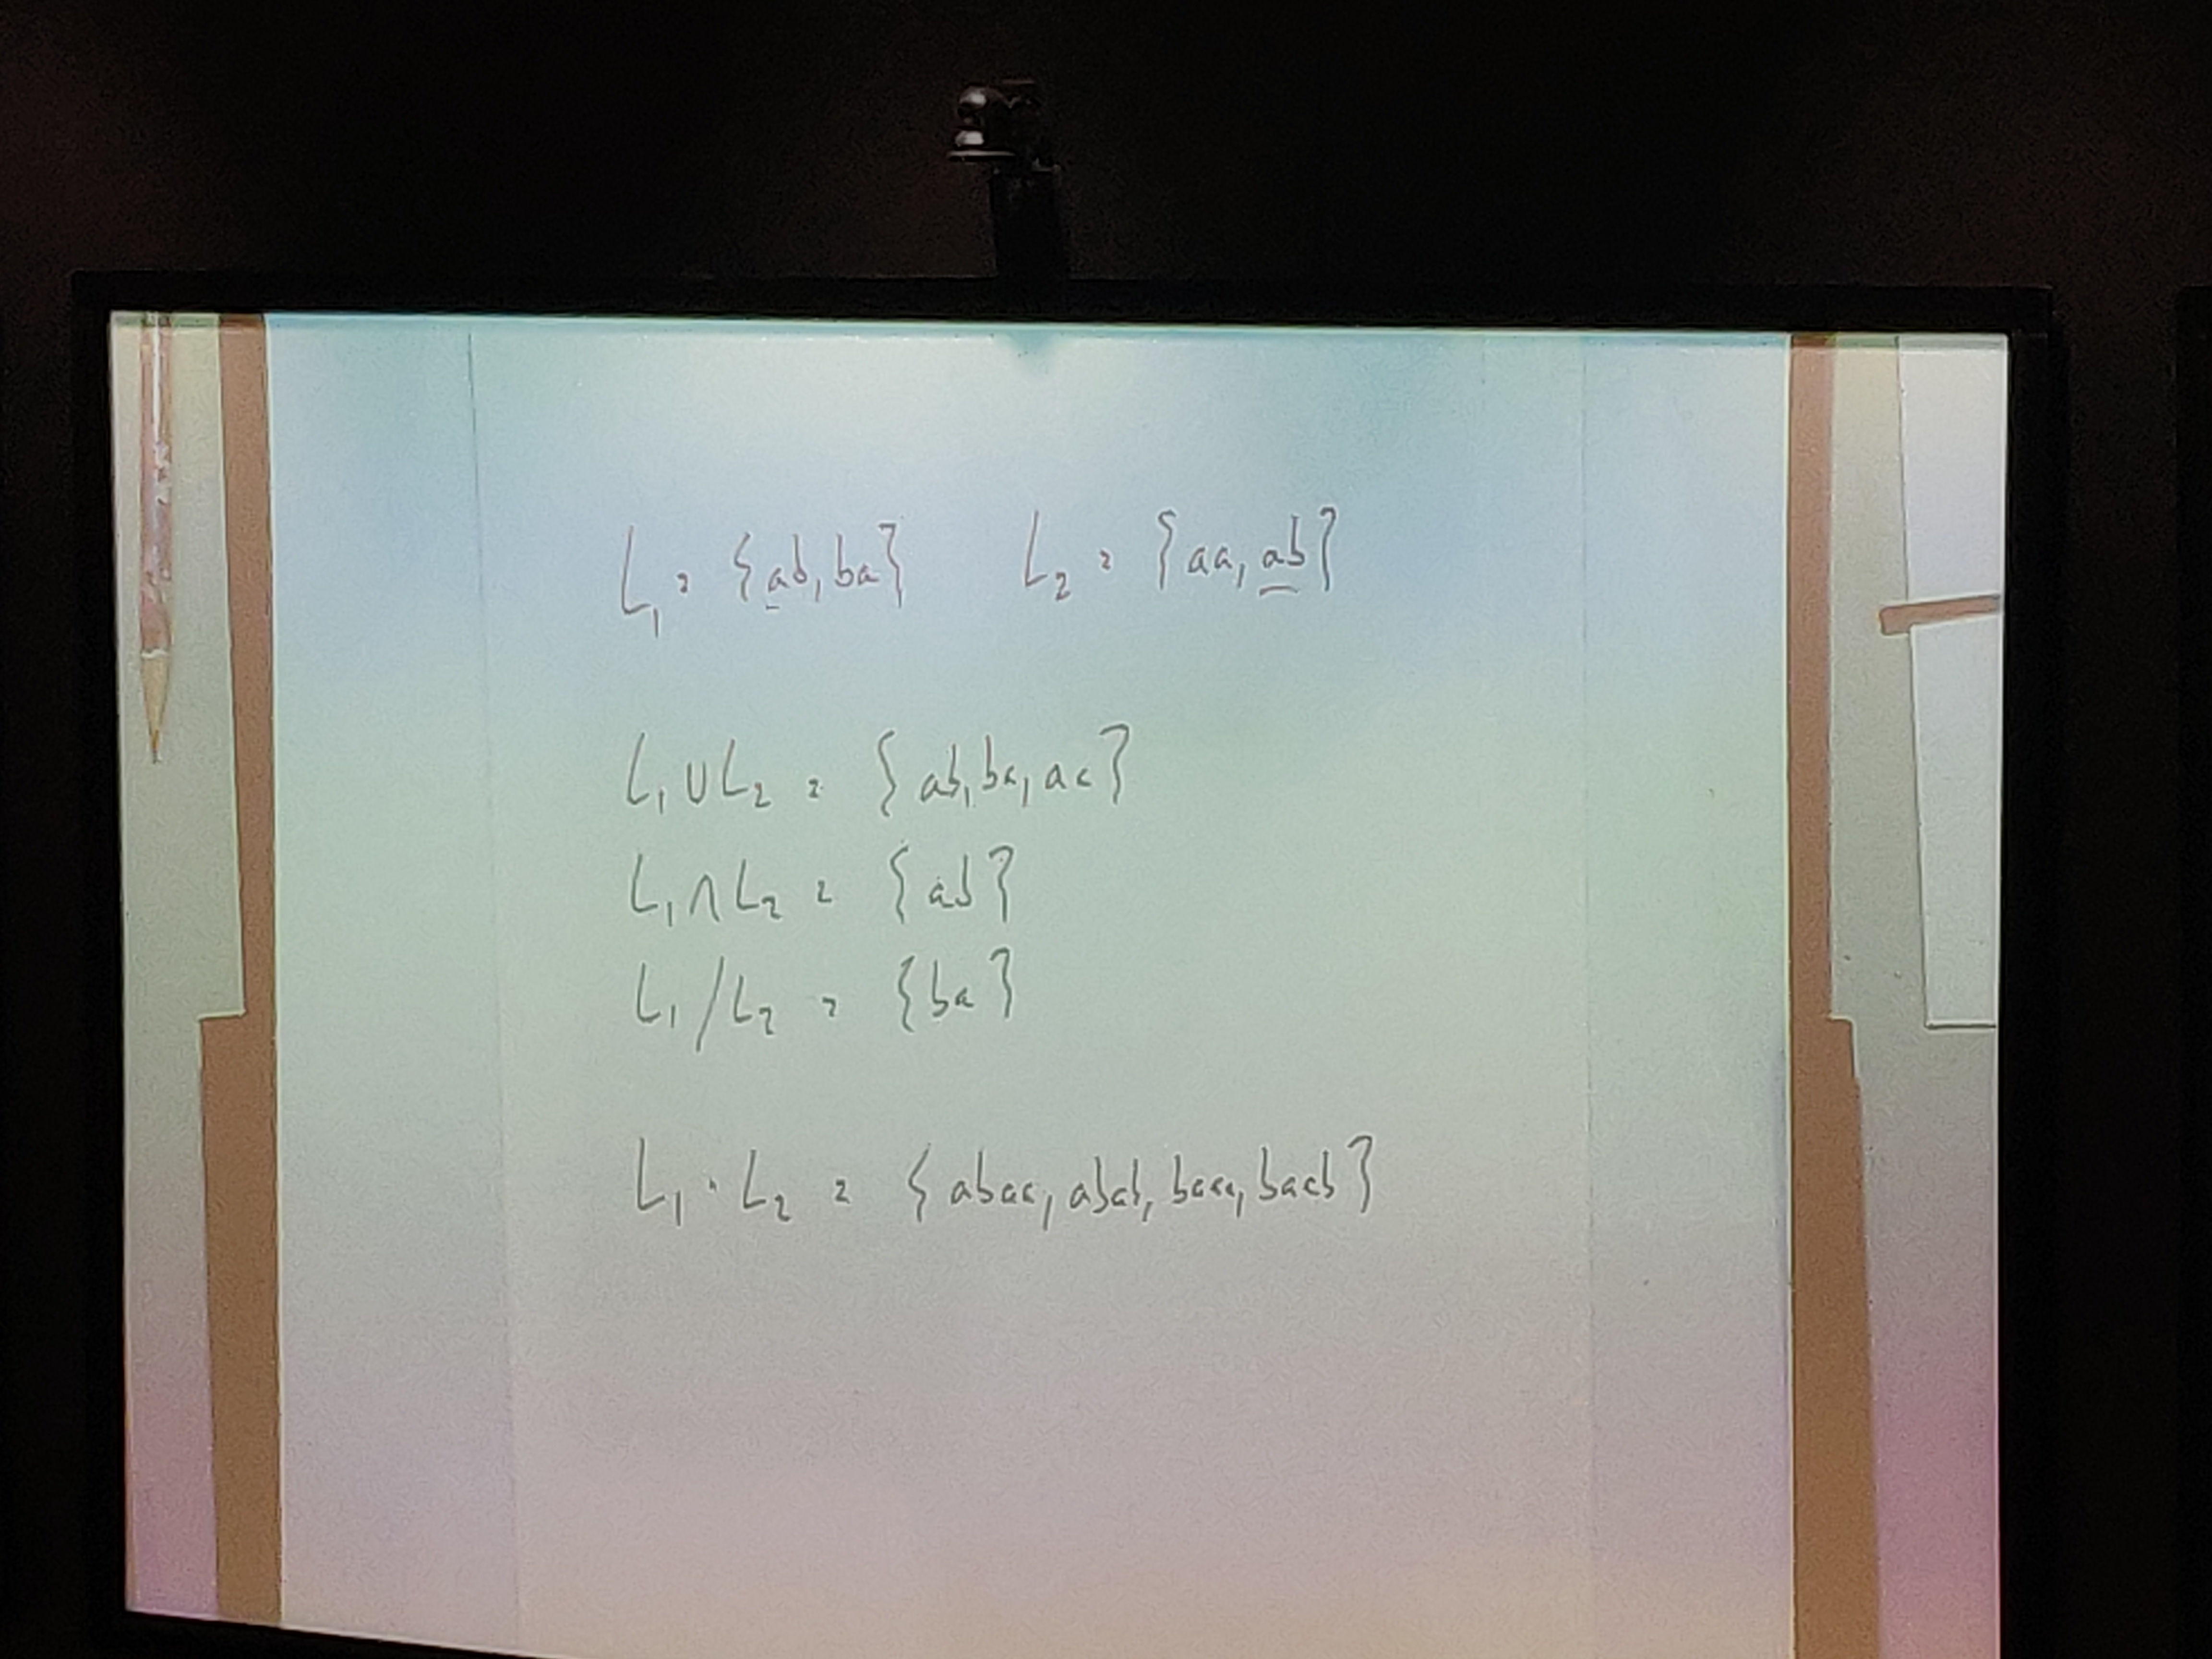 L₁ = {ab, ba} L₂ = {aa, ab}
L₁ ∪ L₂ = {ab, ba, aa}
L₁ ∩ L₂ = {ab}
L₁ / L₂ = {ba}
L₁ · L₂ = {abaa, abab, baaa, baab}